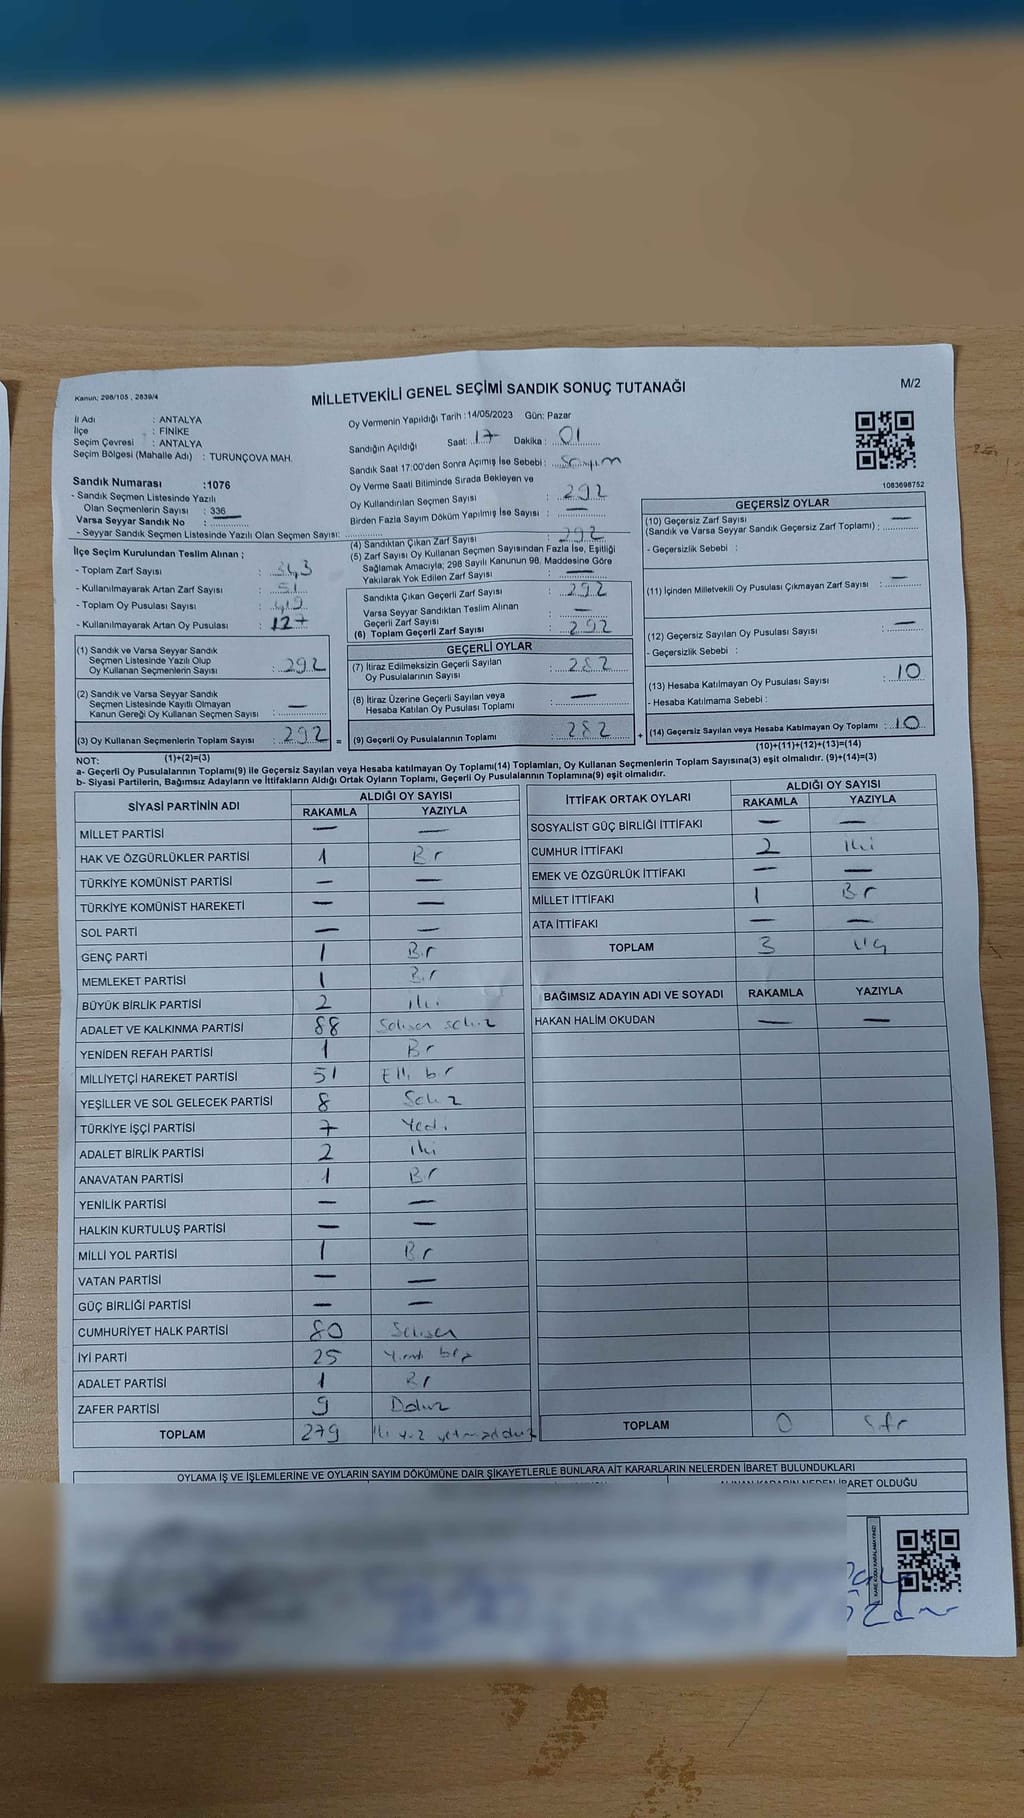 Kanun: 298/105 , 2839/4
MİLLETVEKİLİ GENEL SEÇİMİ SANDIK SONUÇ TUTANAĞI
M/2
İl Adı : ANTALYA
İlçe : FİNİKE
Seçim Çevresi : ANTALYA
Seçim Bölgesi (Mahalle Adı) : TURUNÇOVA MAH.
Sandık Numarası :1076
- Sandık Seçmen Listesinde Yazılı
Olan Seçmenlerin Sayısı : 336
Varsa Seyyar Sandık No : —
- Seyyar Sandık Seçmen Listesinde Yazılı Olan Seçmen Sayısı:
İlçe Seçim Kurulundan Teslim Alınan ;
- Toplam Zarf Sayısı : 343
- Kullanılmayarak Artan Zarf Sayısı : 51
- Toplam Oy Pusulası Sayısı : 419
- Kullanılmayarak Artan Oy Pusulası : 127
(1) Sandık ve Varsa Seyyar Sandık
Seçmen Listesinde Yazılı Olup
Oy Kullanan Seçmenlerin Sayısı : 292
(2) Sandık ve Varsa Seyyar Sandık
Seçmen Listesinde Kayıtlı Olmayan
Kanun Gereği Oy Kullanan Seçmen Sayısı : —
(3) Oy Kullanan Seçmenlerin Toplam Sayısı : 292 =
(1)+(2)=(3)
Oy Vermenin Yapıldığı Tarih :14/05/2023 Gün: Pazar
Sandığın Açıldığı Saat: 17 Dakika : 01
Sandık Saat 17:00'den Sonra Açımış İse Sebebi : Sayım
Oy Verme Saati Bitiminde Sırada Bekleyen ve
Oy Kullandırılan Seçmen Sayısı : 292
Birden Fazla Sayım Döküm Yapılmış İse Sayısı : —
(4) Sandıktan Çıkan Zarf Sayısı : 292
(5) Zarf Sayısı Oy Kullanan Seçmen Sayısından Fazla İse, Eşitliği
Sağlamak Amacıyla; 298 Sayılı Kanunun 98. Maddesine Göre
Yakılarak Yok Edilen Zarf Sayısı : —
Sandıkta Çıkan Geçerli Zarf Sayısı : 292
Varsa Seyyar Sandıktan Teslim Alınan
Geçerli Zarf Sayısı : —
(6) Toplam Geçerli Zarf Sayısı : 292
GEÇERLİ OYLAR
(7) İtiraz Edilmeksizin Geçerli Sayılan
Oy Pusulalarının Sayısı : 282
(8) İtiraz Üzerine Geçerli Sayılan veya
Hesaba Katılan Oy Pusulası Toplamı : —
(9) Geçerli Oy Pusulalarının Toplamı : 282 +
1083698752
GEÇERSİZ OYLAR
(10) Geçersiz Zarf Sayısı
(Sandık ve Varsa Seyyar Sandık Geçersiz Zarf Toplamı) : —
- Geçersizlik Sebebi :
(11) İçinden Milletvekili Oy Pusulası Çıkmayan Zarf Sayısı : —
(12) Geçersiz Sayılan Oy Pusulası Sayısı : —
- Geçersizlik Sebebi :
(13) Hesaba Katılmayan Oy Pusulası Sayısı : 10
- Hesaba Katılmama Sebebi :
(14) Geçersiz Sayılan veya Hesaba Katılmayan Oy Toplamı : 10
(10)+(11)+(12)+(13)=(14)
NOT:
a- Geçerli Oy Pusulalarının Toplamı(9) ile Geçersiz Sayılan veya Hesaba katılmayan Oy Toplamı(14) Toplamları, Oy Kullanan Seçmenlerin Toplam Sayısına(3) eşit olmalıdır. (9)+(14)=(3)
b- Siyasi Partilerin, Bağımsız Adayların ve İttifakların Aldığı Ortak Oyların Toplamı, Geçerli Oy Pusulalarının Toplamına(9) eşit olmalıdır.
SİYASİ PARTİNİN ADI ALDIĞI OY SAYISI
RAKAMLA YAZIYLA
MİLLET PARTİSİ — —
HAK VE ÖZGÜRLÜKLER PARTİSİ 1 Bir
TÜRKİYE KOMÜNİST PARTİSİ — —
TÜRKİYE KOMÜNİST HAREKETİ — —
SOL PARTİ — —
GENÇ PARTİ 1 Bir
MEMLEKET PARTİSİ 1 Bir
BÜYÜK BİRLİK PARTİSİ 2 iki
ADALET VE KALKINMA PARTİSİ 88 Seksen sekiz
YENİDEN REFAH PARTİSİ 1 Bir
MİLLİYETÇİ HAREKET PARTİSİ 51 Elli bir
YEŞİLLER VE SOL GELECEK PARTİSİ 8 Sekiz
TÜRKİYE İŞÇİ PARTİSİ 7 Yedi
ADALET BİRLİK PARTİSİ 2 iki
ANAVATAN PARTİSİ 1 Bir
YENİLİK PARTİSİ — —
HALKIN KURTULUŞ PARTİSİ — —
MİLLİ YOL PARTİSİ 1 Bir
VATAN PARTİSİ — —
GÜÇ BİRLİĞİ PARTİSİ — —
CUMHURİYET HALK PARTİSİ 80 Seksen
İYİ PARTİ 25 Yirmi beş
ADALET PARTİSİ 1 Bir
ZAFER PARTİSİ 9 Dokuz
TOPLAM 279 iki yüz yetmişdokuz
İTTİFAK ORTAK OYLARI ALDIĞI OY SAYISI
RAKAMLA YAZIYLA
SOSYALİST GÜÇ BİRLİĞİ İTTİFAKI — —
CUMHUR İTTİFAKI 2 iki
EMEK VE ÖZGÜRLÜK İTTİFAKI — —
MİLLET İTTİFAKI 1 Bir
ATA İTTİFAKI — —
TOPLAM 3 üç
BAĞIMSIZ ADAYIN ADI VE SOYADI RAKAMLA YAZIYLA
HAKAN HALİM OKUDAN — —
TOPLAM 0 Sıfır
OYLAMA İŞ VE İŞLEMLERİNE VE OYLARIN SAYIM DÖKÜMÜNE DAİR ŞİKAYETLERLE BUNLARA AİT KARARLARIN NELERDEN İBARET BULUNDUKLARI
ALINAN KARARIN NEDEN İBARET OLDUĞU